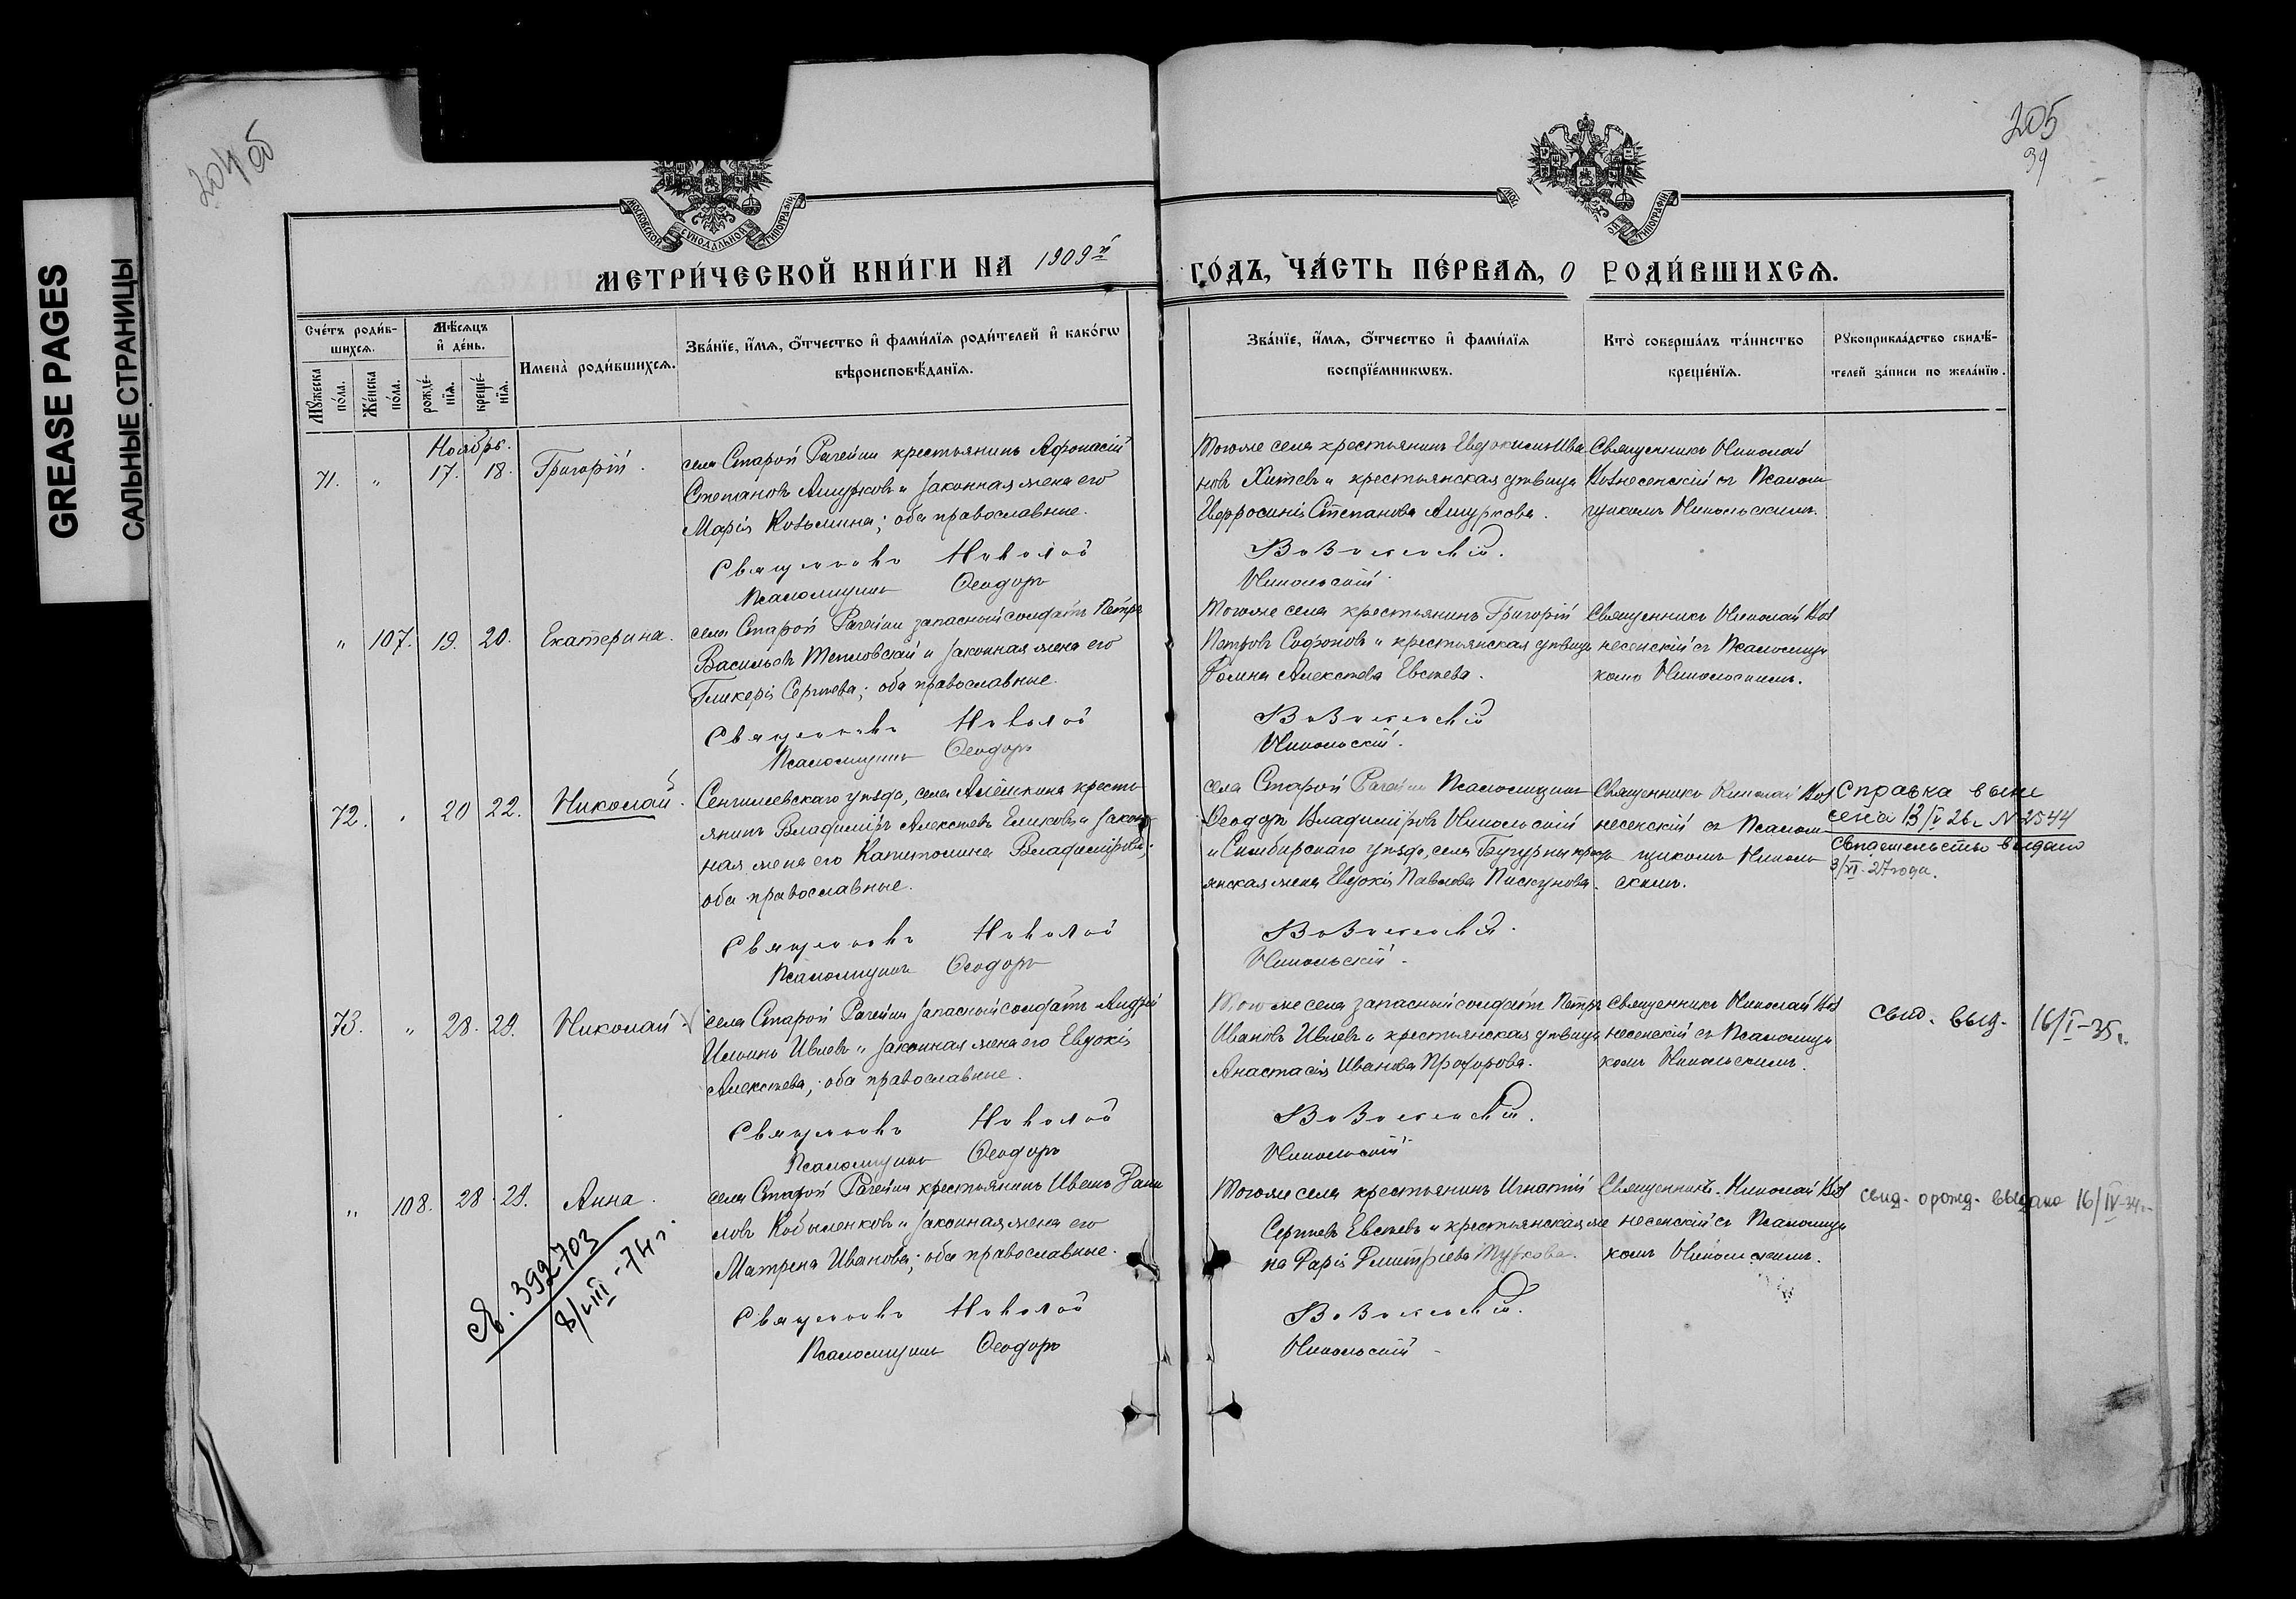 GREASE PAGES
САЛЬНЫЕ СТРАНИЦЫ
204 об
205
39
МОСКОВСКОЙ СѴНОДАЛЬНОЙ ТИПОГРАФІИ
МЕТРИ́ЧЕСКОЙ КНИ́ГИ НА 1909й
ГО́ДЪ, ЧА́СТЬ ПЕ́РВАѦ, О РОДИ́ВШИХСѦ.
Сче́тъ роди́в-
шихсѧ.
Мꙋ́жеска
по́ла.
Же́нска
по́ла.
Мѣ́сѧцъ
и҆ де́нь.
рожде́-
нїѧ.
креще́-
нїѧ.
Имена̀ роди́вшихсѧ.
Зва́нїе, и҆́мѧ, ѻ҆́тчество и҆ фами́лїѧ роди́телей и҆ како́гѡ
вѣроисповѣ́данїѧ.
Зва́нїе, и҆́мѧ, ѻ҆́тчество и҆ фами́лїѧ
воспрїе́мникѡвъ.
Кто̀ соверша́лъ та́инство
креще́нїѧ.
Рꙋкоприкла́дство свидѣ́-
телей за́писи по жела́нїю.
Ноябрь.
71. " 17. 18. Григорій.
села Старой Рачейки крестьянинъ Афонасій
Степановъ Ашурковъ и законная жена его
Марія Козьмина; оба православные.
Священникъ Николай
Псаломщикъ Ѳеодоръ
Тогоже села крестьянинъ Евдокимъ Ива
новъ Хитевъ и крестьянская дѣвица
Евфросинія Степанова Ашуркова.
Вознесенскій.
Никольскій.
Священникъ Николай
Вознесенскій съ Псаломщикомъ Никольскимъ.
" 107. 19. 20. Екатерина.
села Старой Рачейки запасный солдатъ Петръ
Васильевъ Тепловскій и законная жена его
Гликерія Сергѣева; оба православные.
Священникъ Николай
Псаломщикъ Ѳеодоръ
Тогоже села крестьянинъ Григорій
Петровъ Софоновъ и крестьянская дѣвица
Алексѣева Евсеева.
Вознесенскій
Никольскій.
Священникъ Николай Воз
несенскій съ Псаломщи
комъ Никольскимъ.
72. " 20 22. Николай.
Сенгилеевскаго уѣзда, села Алёшкина кресть
янинъ Владиміръ Алексѣевъ Еликовъ и закон
ная жена его Капитолина Владимірова;
оба православные.
Священникъ Николай
Псаломщикъ Ѳеодоръ
села Старой Рачейки Псаломщикъ
Ѳеодоръ Владиміровъ Никольскій
и Симбирскаго уѣзда, села кресть
янская жена Евдокія Павлова Пискунова.
Вознесенскій.
Никольскій.
Священникъ Николай Воз
несенскій съ Псалом
щикомъ Николь
скимъ.
Справка выне
сена 13/V 26 г. N 2544
Свидетельство выдано
3/XI 27 года.
73. " 28. 29. Николай.
села Старой Рачейки запасный солдатъ Андрей
Ильинъ Ивлевъ и законная жена его Евдокія
Алексѣева; оба православные.
Священникъ Николай
Псаломщикъ Ѳеодоръ
Тогоже села запасный солдатъ Петръ
Ивановъ Ивлевъ и крестьянская дѣвица
Анастасія Иванова Прохорова.
Вознесенскій.
Никольскій
Священникъ Николай Воз
несенскій съ Псаломщи
комъ Никольскимъ.
Свид. выд. 16/I-35 г.
" 108. 28. 29. Анна.
села Старой Рачейки крестьянинъ Иванъ Дани
ловъ Кобыленковъ и законная жена его
Матрена Иванова; оба православные.
Священникъ Николай
Псаломщикъ Ѳеодоръ
Тогоже села крестьянинъ Игнатій
Сергѣевъ Евсеевъ и крестьянская же
на Дарія Дмитріева Туркова.
Вознесенскій.
Никольскій
Священникъ Николай Воз
несенскій съ Псаломщи
комъ Никольскимъ.
свид. о рожд. выдано 16/IV-34 г.
св. 392703
8/VIII-74 г.